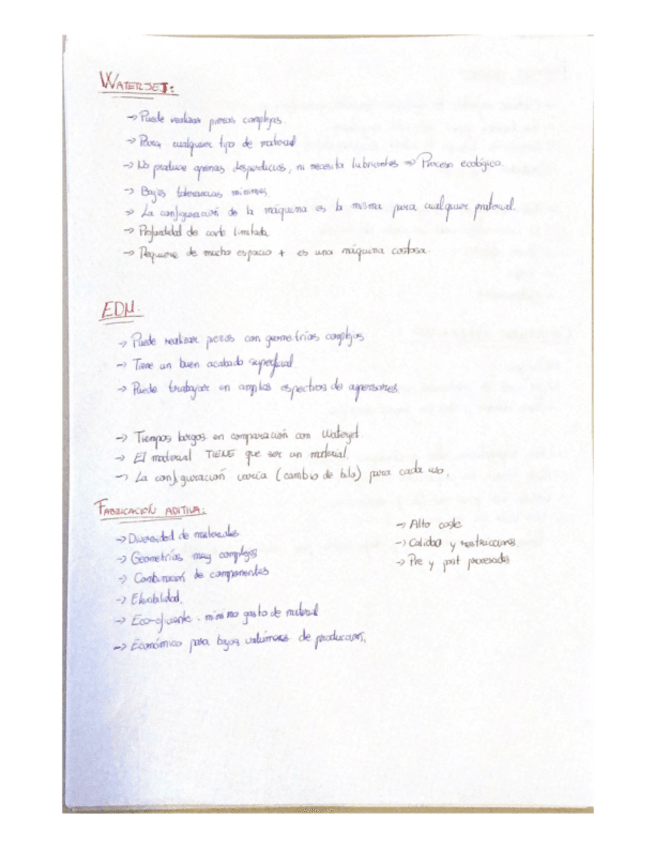 WATERJET:
→ Puede realizar piezas complejas.
→ Para cualquier tipo de material
→ No produce apenas desperdicios, ni necesita lubricantes ⇒ Proceso ecológico.
→ Bajas tolerancias mínimas.
→ La configuración de la máquina es la misma para cualquier material.
→ Profundidad de corte limitada.
→ Requiere de mucho espacio + es una máquina costosa.
EDM.
→ Puede realizar piezas con geometrías complejas
→ Tiene un buen acabado superficial
→ Puede trabajar en amplios espectros de
→ Tiempos largos en comparación con Waterjet.
→ El material TIENE que ser un material
→ La configuración varía (cambio de hilo) para cada uso.
FABRICACIÓN ADITIVA:
→ Diversidad de materiales
→ Geometrías muy complejas
→ Combinación de componentes
→ Flexibilidad.
→ Eco-eficiente - mínimo gasto de material
→ Económico para bajos volúmenes de producción.
→ Alto coste
→ Calidad y restricciones
→ Pre y post procesados